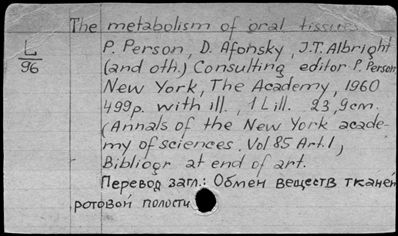 The metabolism of oral tissues
P. Person, D. Afonsky, J.T. Albright
L
96
(and oth.) Consulting editor P. Person
New York, The Academy, 1960
499p. with ill., 1 L ill. 23,9cm.
(Annals of the New York acade-
my of sciences. Vol 85 Art. 1,
Bibliogr at end of art.
Перевод загл.: Обмен веществ тканей
ротовой полости